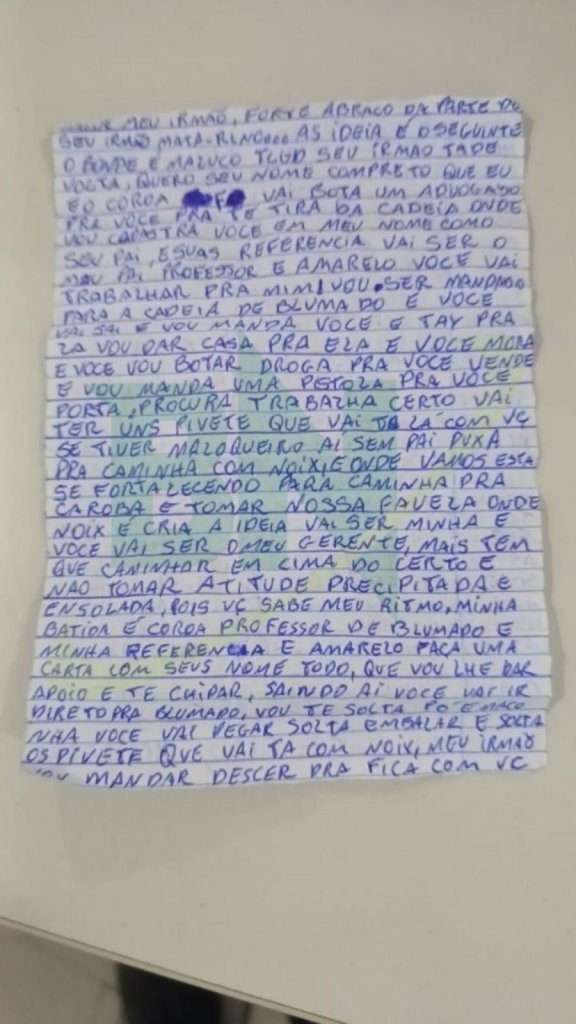 MEU IRMÃO, FORTE ABRAÇO DA PARTE DO
SEU IRMÃO MATA-RINO... AS IDEIA É OSEGUINTE
O BONDE É MALUCO TLGD SEU IRMÃO TADE
VOLTA, QUERO SEU NOME COMPRETO QUE EU
EO COROA F VAI BOTA UM ADVOGADO
PRA VOCE PRA TE TIRA DA CADEIA ONDE
VOU CAPASTRA VOCE EM MEU NOME COMO
SEU PAI, ESUAS REFERENCIA VAI SER O
MEU PAI PROFESSOR E AMARELO VOCE VAI
TRABALHAR PRA MIM, VOU SER MANDADO
PARA A CADEIA DE BLUMADO E VOCE
VAI SAI E VOU MANDA VOCE E TAY PRA
LA VOU DAR CASA PRA ELA E VOCE MORA
E VOCE VOU BOTAR DROGA PRA VOCE VENDE
E VOU MANDA UMA PISTOLA PRA VOCE
PORTA, PROCURA TRABALHA CERTO VAI
TER UNS PIVETE QUE VAI TA LÁ COM VC
SE TIVER MALOQUEIRO AI SEM PAI PUXA
PRA CAMINHA COM NOIX, E ONDE VAMOS ESTA
SE FORTALECENDO PARA CAMINHA PRA
CAROBA E TOMAR NOSSA FAVELA ONDE
NOIX É CRIA A IDEIA VAI SER MINHA E
VOCE VAI SER OMEU GERENTE, MAIS TEM
QUE CAMINHAR EM CIMA DO CERTO E
NÃO TOMAR ATITUDE PRECIPITADA E
ENSOLADA, POIS VC SABE MEU RITMO, MINHA
BATIDA É COROA PROFESSOR DE BLUMADO E
MINHA REFERENCIA E AMARELO FAÇA UMA
CARTA COM SEUS NOME TODO, QUE VOU LHE DAR
APOIO E TE CHIPAR, SAINDO AI VOCE VAI IR
DIRETO PRA BLUMADO, VOU TE SOLTA PÓ E MACO
NHA VOCE VAI PEGAR SOLTA EMBALAR E SOLTA
OS PIVETE QUE VAI TA COM NOIX, MEU IRMÃO
VOU MANDAR DESCER PRA FICA COM VC